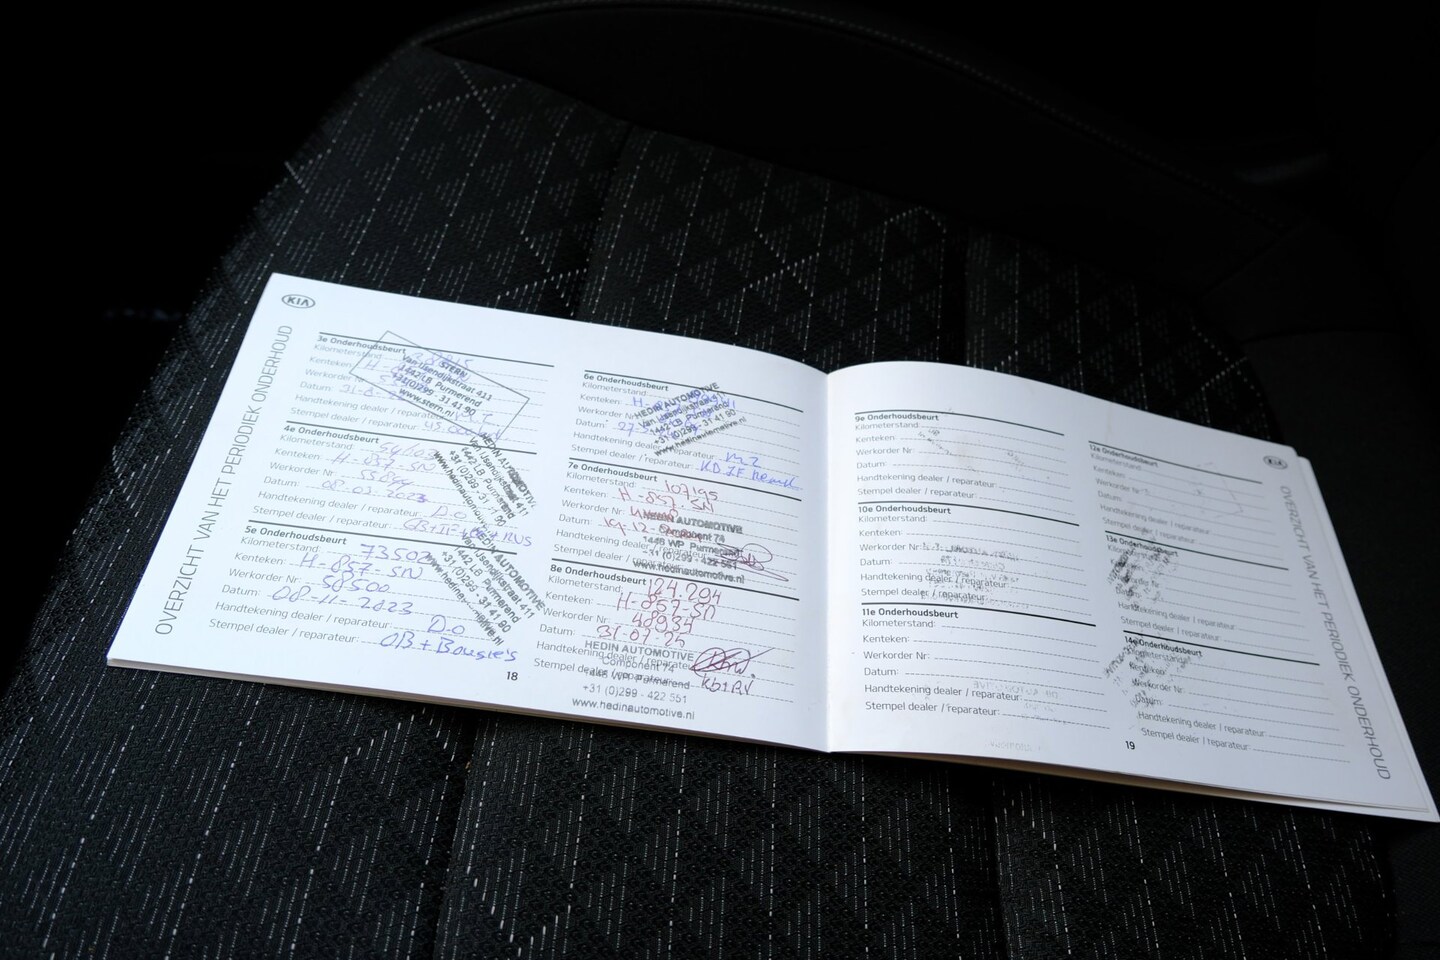 KIA
OVERZICHT VAN HET PERIODIEK ONDERHOUD
3e Onderhoudsbeurt
Kilometerstand:
Kenteken: H-
Werkorder Nr:
Datum: 31-8-
Handtekening dealer / reparateur:
Stempel dealer / reparateur: 45.000
STERN
Van IJsendijkstraat 411
1442 LB Purmerend
+31(0)299 - 31 41 90
www.stern.nl
4e Onderhoudsbeurt
Kilometerstand:
Kenteken: H-857-SN
Werkorder Nr:
Datum: 08-03-2023
Handtekening dealer / reparateur: D.O
Stempel dealer / reparateur:
HEDIN AUTOMOTIVE
Van IJsendijkstraat 411
1442 LB Purmerend
+31 (0)299 - 31 41 90
www.hedinautomotive.nl
5e Onderhoudsbeurt
Kilometerstand: 73502
Kenteken: H-857-SN
Werkorder Nr: 58500
Datum: 08-11-2023
Handtekening dealer / reparateur: D.O
Stempel dealer / reparateur: OB + Bougie's
HEDIN AUTOMOTIVE
Van IJsendijkstraat 411
1442 LB Purmerend
+31 (0)299 - 31 41 90
www.hedinautomotive.nl
18
6e Onderhoudsbeurt
Kilometerstand:
Kenteken: H-
Werkorder Nr:
Datum: 27-5-
Handtekening dealer / reparateur: M2
Stempel dealer / reparateur:
HEDIN AUTOMOTIVE
Van IJsendijkstraat 411
1442 LB Purmerend
+31 (0)299 - 31 41 90
www.hedinautomotive.nl
7e Onderhoudsbeurt
Kilometerstand: 107195
Kenteken: H-857-SN
Werkorder Nr:
Datum: 19-12-
Handtekening dealer / reparateur:
Stempel dealer / reparateur:
HEDIN AUTOMOTIVE
Component 74
1446 WP Purmerend
+31 (0)299 - 422 551
www.hedinautomotive.nl
8e Onderhoudsbeurt
Kilometerstand: 124.294
Kenteken: H-857-SN
Werkorder Nr: 48934
Datum: 31-07-25
Handtekening dealer / reparateur:
Stempel dealer / reparateur:
HEDIN AUTOMOTIVE
Component 74
1446 WP Purmerend
+31 (0)299 - 422 551
www.hedinautomotive.nl
9e Onderhoudsbeurt
Kilometerstand:
Kenteken:
Werkorder Nr:
Datum:
Handtekening dealer / reparateur:
Stempel dealer / reparateur:
10e Onderhoudsbeurt
Kilometerstand:
Kenteken:
Werkorder Nr:
Datum:
Handtekening dealer / reparateur:
Stempel dealer / reparateur:
11e Onderhoudsbeurt
Kilometerstand:
Kenteken:
Werkorder Nr:
Datum:
Handtekening dealer / reparateur:
Stempel dealer / reparateur:
12e Onderhoudsbeurt
Kilometerstand:
Kenteken:
Werkorder Nr:
Datum:
Handtekening dealer / reparateur:
Stempel dealer / reparateur:
13e Onderhoudsbeurt
Kilometerstand:
Kenteken:
Werkorder Nr:
Datum:
Handtekening dealer / reparateur:
Stempel dealer / reparateur:
14e Onderhoudsbeurt
Kilometerstand:
Kenteken:
Werkorder Nr:
Datum:
Handtekening dealer / reparateur:
Stempel dealer / reparateur:
19
KIA
OVERZICHT VAN HET PERIODIEK ONDERHOUD